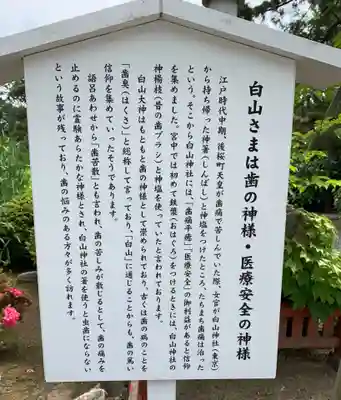 白山さまは歯の神様・医療安全の神様
江戸時代中期、後桜町天皇が歯痛で苦しんでいた際、女官が白山神社(東京)
から持ち帰った神箸(しんばし)と神塩をつけたところ、たちまち歯痛は治った
という。そこから白山神社には、「歯痛平癒」「医療安全」の御利益があると信仰
を集めました。宮中では初めて鉄漿(おはぐろ)をつけるときには、白山神社の
神楊枝(昔の歯ブラシ)と神塩を使っていたと言われております。
白山大神はもともと歯の神様として崇められており、古くは歯の病のことを
「歯臭(はくさ)」と総称して言っており、「白山」に通じることからも、歯の篤い
信仰を集めていったそうであります。
語呂あわせから「歯苦散」とも言われ、歯の苦しみが散るとして、歯の痛みを
止めるのに霊験あらたかな神様とされ、白山神社の箸を使うと虫歯にならない
という故事が残っており、歯の悩みのある方々が多く訪れます。